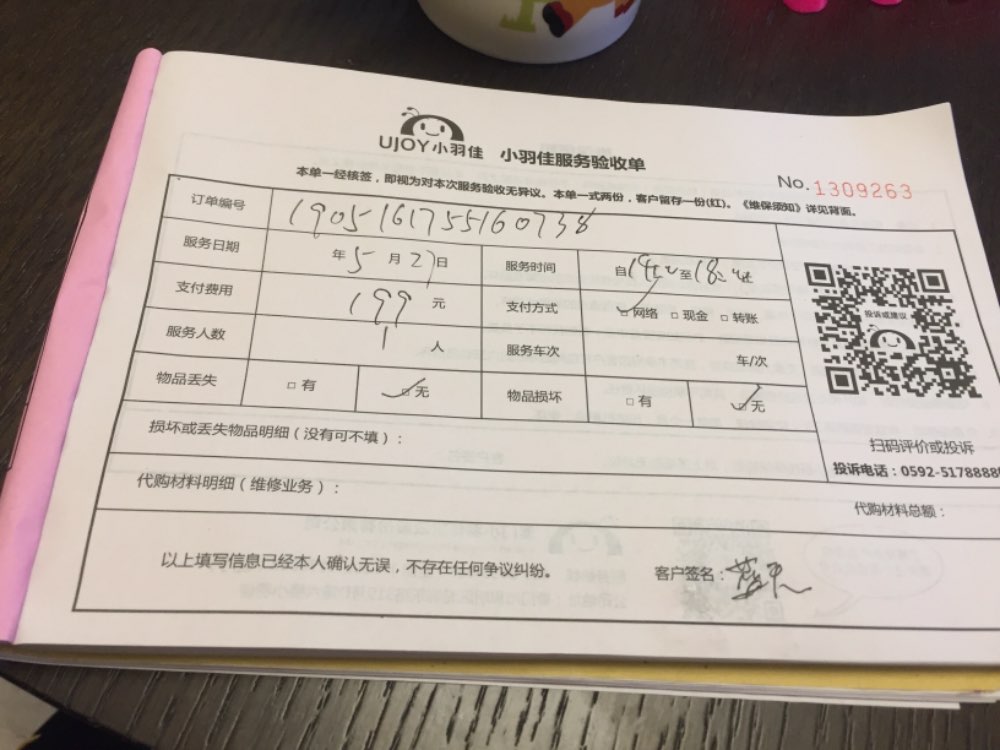 UJOY小羽佳 小羽佳服务验收单
No.1309263
本单一经核签，即视为对本次服务验收无异议。本单一式两份，客户留存一份(红)。《维保须知》详见背面。
订单编号 1905161755160738
服务日期 年 5 月 27 日 服务时间 自 至
支付费用 199 元 支付方式 网络 □现金 □转账
服务人数 1 人 服务车次 车/次
物品丢失 □有 □无 物品损坏 □有 □无
投诉或建议
扫码评价或投诉
投诉电话：0592-5178888
损坏或丢失物品明细（没有可不填）：
代购材料明细（维修业务）：
代购材料总额：
以上填写信息已经本人确认无误，不存在任何争议纠纷。 客户签名：